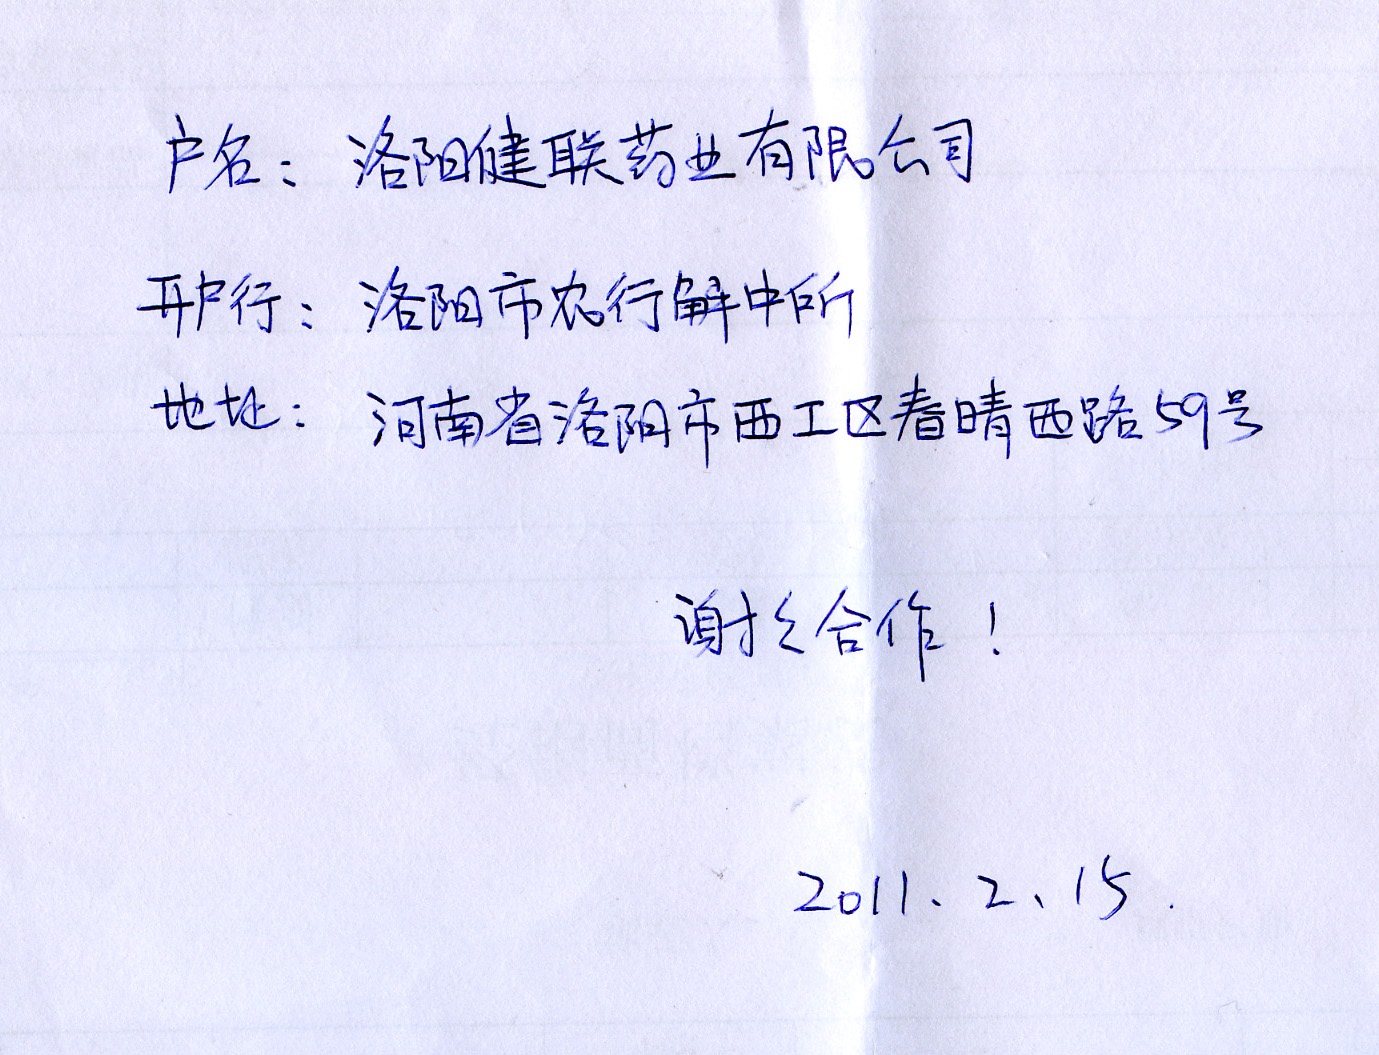 户名：洛阳健联药业有限公司
开户行：洛阳市农行解中所
地址：河南省洛阳市西工区春晴西路59号
谢谢合作！
2011、2、15.